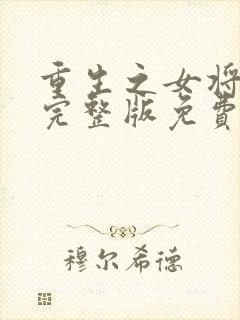 重生之女将
完整版免費
穆尔希德